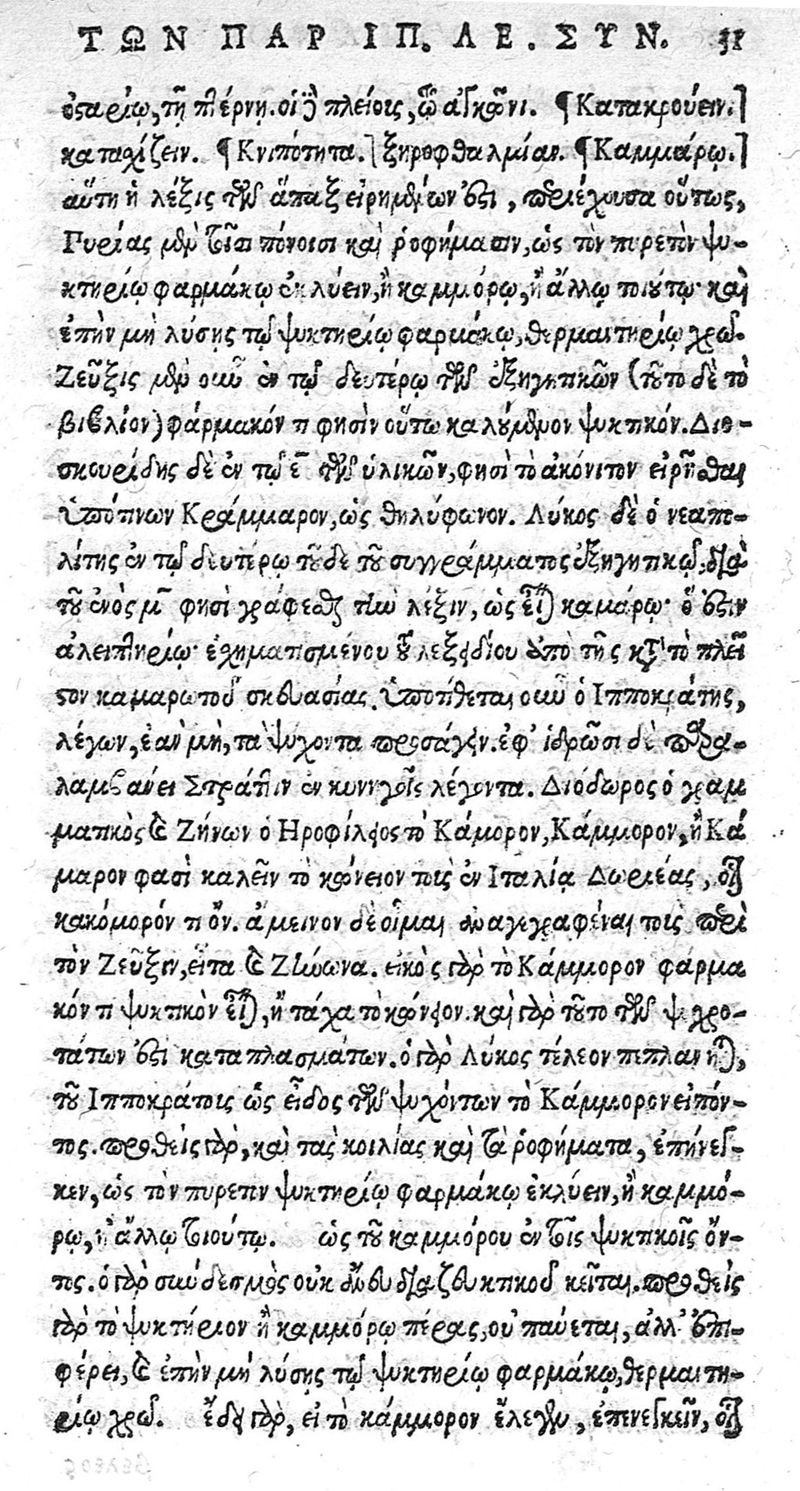 ΤΩΝ ΠΑΡ ΙΠ. ΛΕ. ΣΥΝ. 51
ὀσταρίῳ, τῇ πτέρνῃ. οἱ δὲ πλείοις, τῷ ἀγκῶνι. ¶ Κατακρούειν.]
κατασχίζειν. ¶ Κνιπότητα.] ξηροφθαλμίαν. ¶ Καμμάρῳ.]
αὕτη ἡ λέξις τῶν ἅπαξ εἰρημένων ἐστὶ, περιέχουσα οὕτως,
μὲν τοῖσι πόνοισι καὶ ῥοφήμασιν, ὡς τὸν πυρετὸν ψυ-
κτηρίῳ φαρμάκῳ ἐκλύειν, ἢ καμμόρῳ, ἢ ἄλλῳ τοιούτῳ· καὶ
ἐπὴν μὴ λύσης τῷ ψυκτηρίῳ φαρμάκῳ, θερμαντηρίῳ χρῶ.
Ζεῦξις μὲν οὖν ἐν τῷ δευτέρῳ τῶν ἐξηγητικῶν (τοῦτο δὲ τὸ
βιβλίον) φάρμακόν τι φησὶν οὕτω καλούμενον ψυκτικόν. Διο-
σκουρίδης δὲ ἐν τῷ ε̄ τῶν ὑλικῶν, φησὶ τὸ ἀκόνιτον εἰρῆσθαι
ὑπό τινων Κράμμαρον, ὡς θηλύφωνον. Λύκος δὲ ὁ νεαπο-
λίτης ἐν τῷ δευτέρῳ τοῦδε τοῦ συγγράμματος ἐξηγητικῷ, διὰ
τοῦ ἑνὸς μ̄ φησὶ γράφεσθαι τὴν λέξιν, ὡς εἶναι καμάρῳ· ὅ ἐστιν
ἀλειπτηρίῳ· ἐσχηματισμένου τοῦ λεξειδίου ἀπὸ τῆς κατὰ τὸ πλεῖ
στον καμαρωτοῦ σκευασίας. ὑποτίθεται οὖν ὁ Ἱπποκράτης,
λέγων, ἐὰν μὴ, τὰ ψύχοντα προσάγειν. ἐφ' ἱδρῶσι δὲ παρα-
λαμβάνει Στράτιν ἐν λέγοντα. Διόδωρος ὁ γραμ
ματικὸς καὶ Ζήνων ὁ Ἡροφίλειος τὸ Κάμορον, Κάμμορον, ἢ Κά
μαρον φασὶ καλεῖν τὸ κώνειον τοὺς ἐν Ἰταλίᾳ Δωριέας, οἷον
κακόμορόν τι ὄν. ἄμεινον δὲ οἶμαι ἀναγεγραφέναι τοὺς περὶ
τὸν Ζεῦξιν, εἶτα καὶ Ζήνωνα. εἰκὸς γὰρ τὸ Κάμμορον φάρμα
κόν τι ψυκτικὸν εἶναι, ἢ τάχα τὸ κώνειον. καὶ γὰρ τοῦτο τῶν ψυχρο-
τάτων ἐστὶ καταπλασμάτων. ὁ γὰρ Λύκος τέλεον πεπλάνηται,
τοῦ Ἱπποκράτους ὡς εἶδος τῶν ψυχόντων τὸ Κάμμορον εἰπόν-
τος. προθεὶς γὰρ, καὶ τὰς κοιλίας καὶ τὰ ῥοφήματα, ἐπήνεγ-
κεν, ὡς τὸν πυρετὸν ψυκτηρίῳ φαρμάκῳ ἐκλύειν, ἢ καμμό-
ρῳ, ἢ ἄλλῳ τοιούτῳ. ὡς τοῦ καμμόρου ἐν τοῖς ψυκτικοῖς ὄν-
τος. ὁ γὰρ σύνδεσμὸς οὐκ κεῖται. προθεὶς
γὰρ τὸ ψυκτήριον ἢ καμμόρῳ πέρας, οὐ παύεται, ἀλλ' ἐπι-
φέρει, καὶ ἐπὴν μὴ λύσης τῷ ψυκτηρίῳ φαρμάκῳ, θερμαντη-
ρίῳ χρῶ. ἔδει γὰρ, εἰ τὸ κάμμορον ἔλεγεν, ἐπενεγκεῖν, οἷον